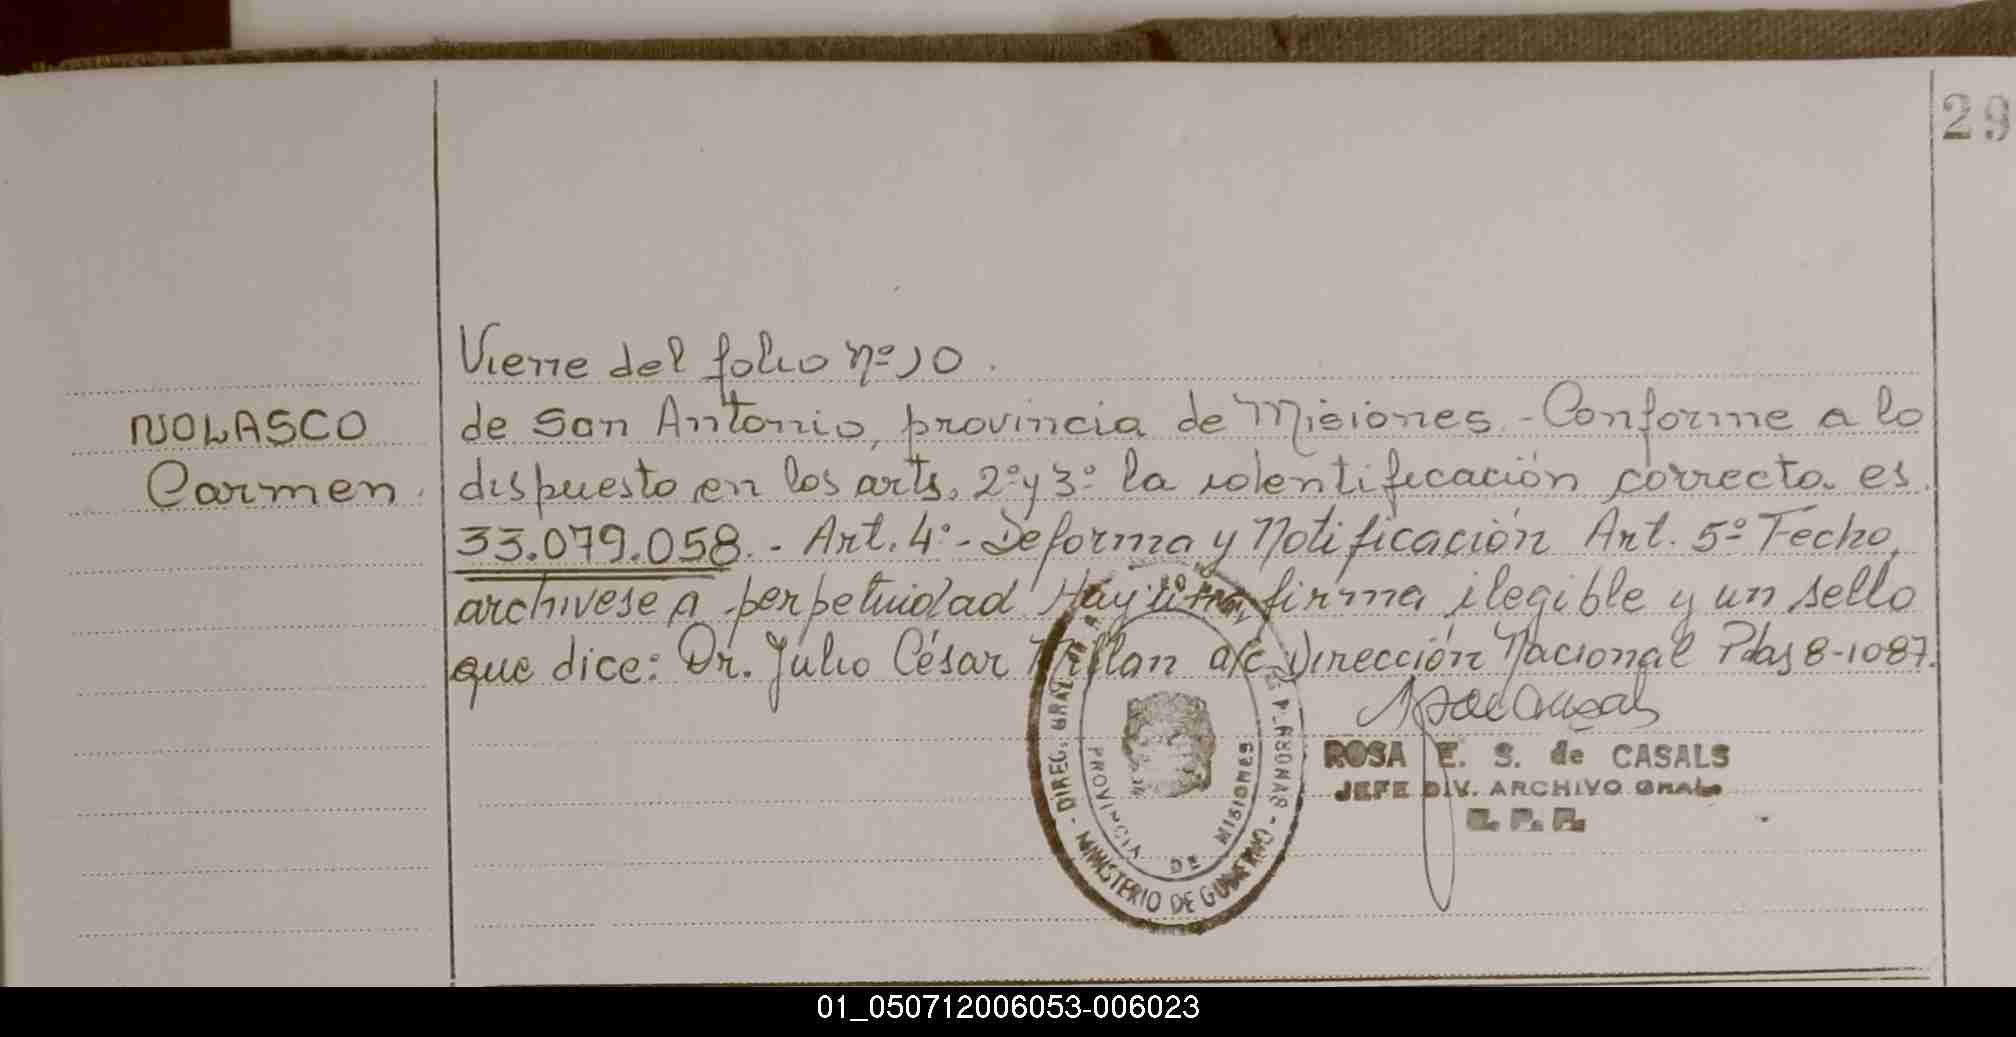 29
Viene del folio nº 10.
NOLASCO
Carmen.
de San Antonio, provincia de Misiones - Conforme a lo
dispuesto en los arts. 2º y 3º la identificación correcta es
33.079.058. - Art. 4º - De forma y Notificación Art. 5º Fecho,
archivese a perpetuidad Hay una firma ilegible y un sello
que dice: Dr. Julio César Millan a/c Dirección Nacional Pdas 8-1087.
ROSA E. S. de CASALS
JEFE DIV. ARCHIVO GRAL
R. P. P.
DIREC. GRAL
PERSONAS
MINISTERIO DE GOBIERNO
PROVINCIA DE MISIONES
01_050712006053-006023